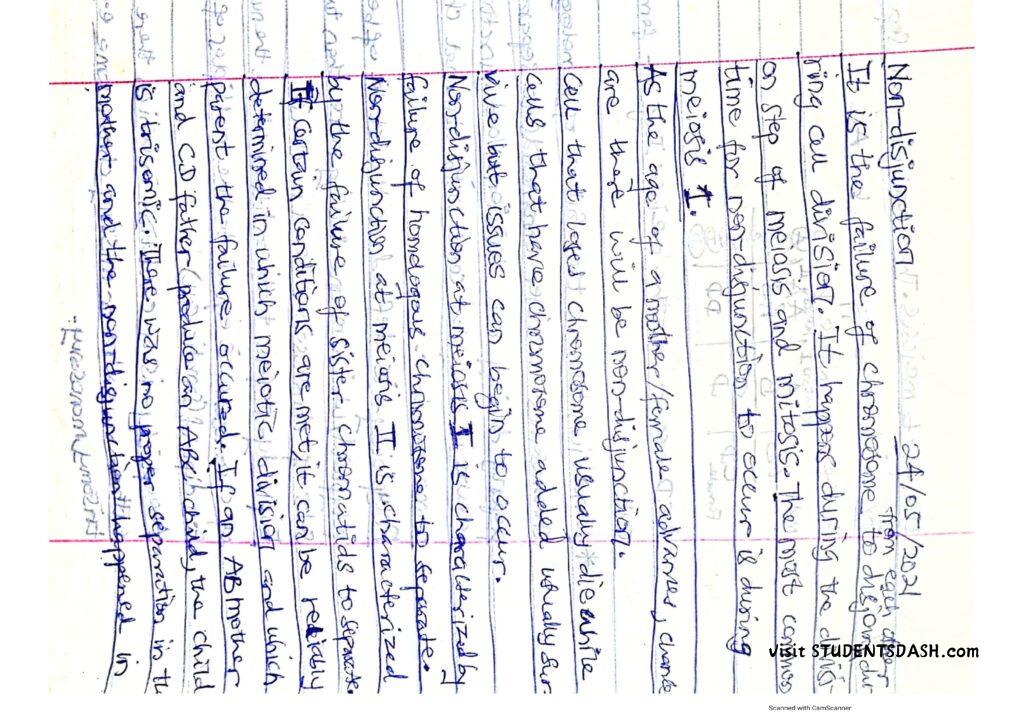 24/05/2021
Non-disjunction
from each other
It is the failure of chromosome to disjoin du-
ring cell division. It happens during the divisi-
on step of meiosis and mitosis. The most common
time for non-disjunction to occur is during
meiosis I.
As the age of a mother/female advances, chance
are there will be non-disjunction.
Cell that loses chromosome usually die while
cells that have chromosome added usually sur-
vive but issues can begin to occur.
Non-disjunction at meiosis I is characterized by
failure of homologous chromosome to separate.
Non-disjunction at meiosis II is characterized
by the failure of sister chromatids to separate
If certain conditions are met, it can be reliably
determined in which meiotic division and which
parent the failure occured. If an AB mother
and CD father produce an ABC child, the child
is trisomic. There was no proper separation in the
mother and the non-disjunction happened in
visit STUDENTSDASH.com
Scanned with CamScanner